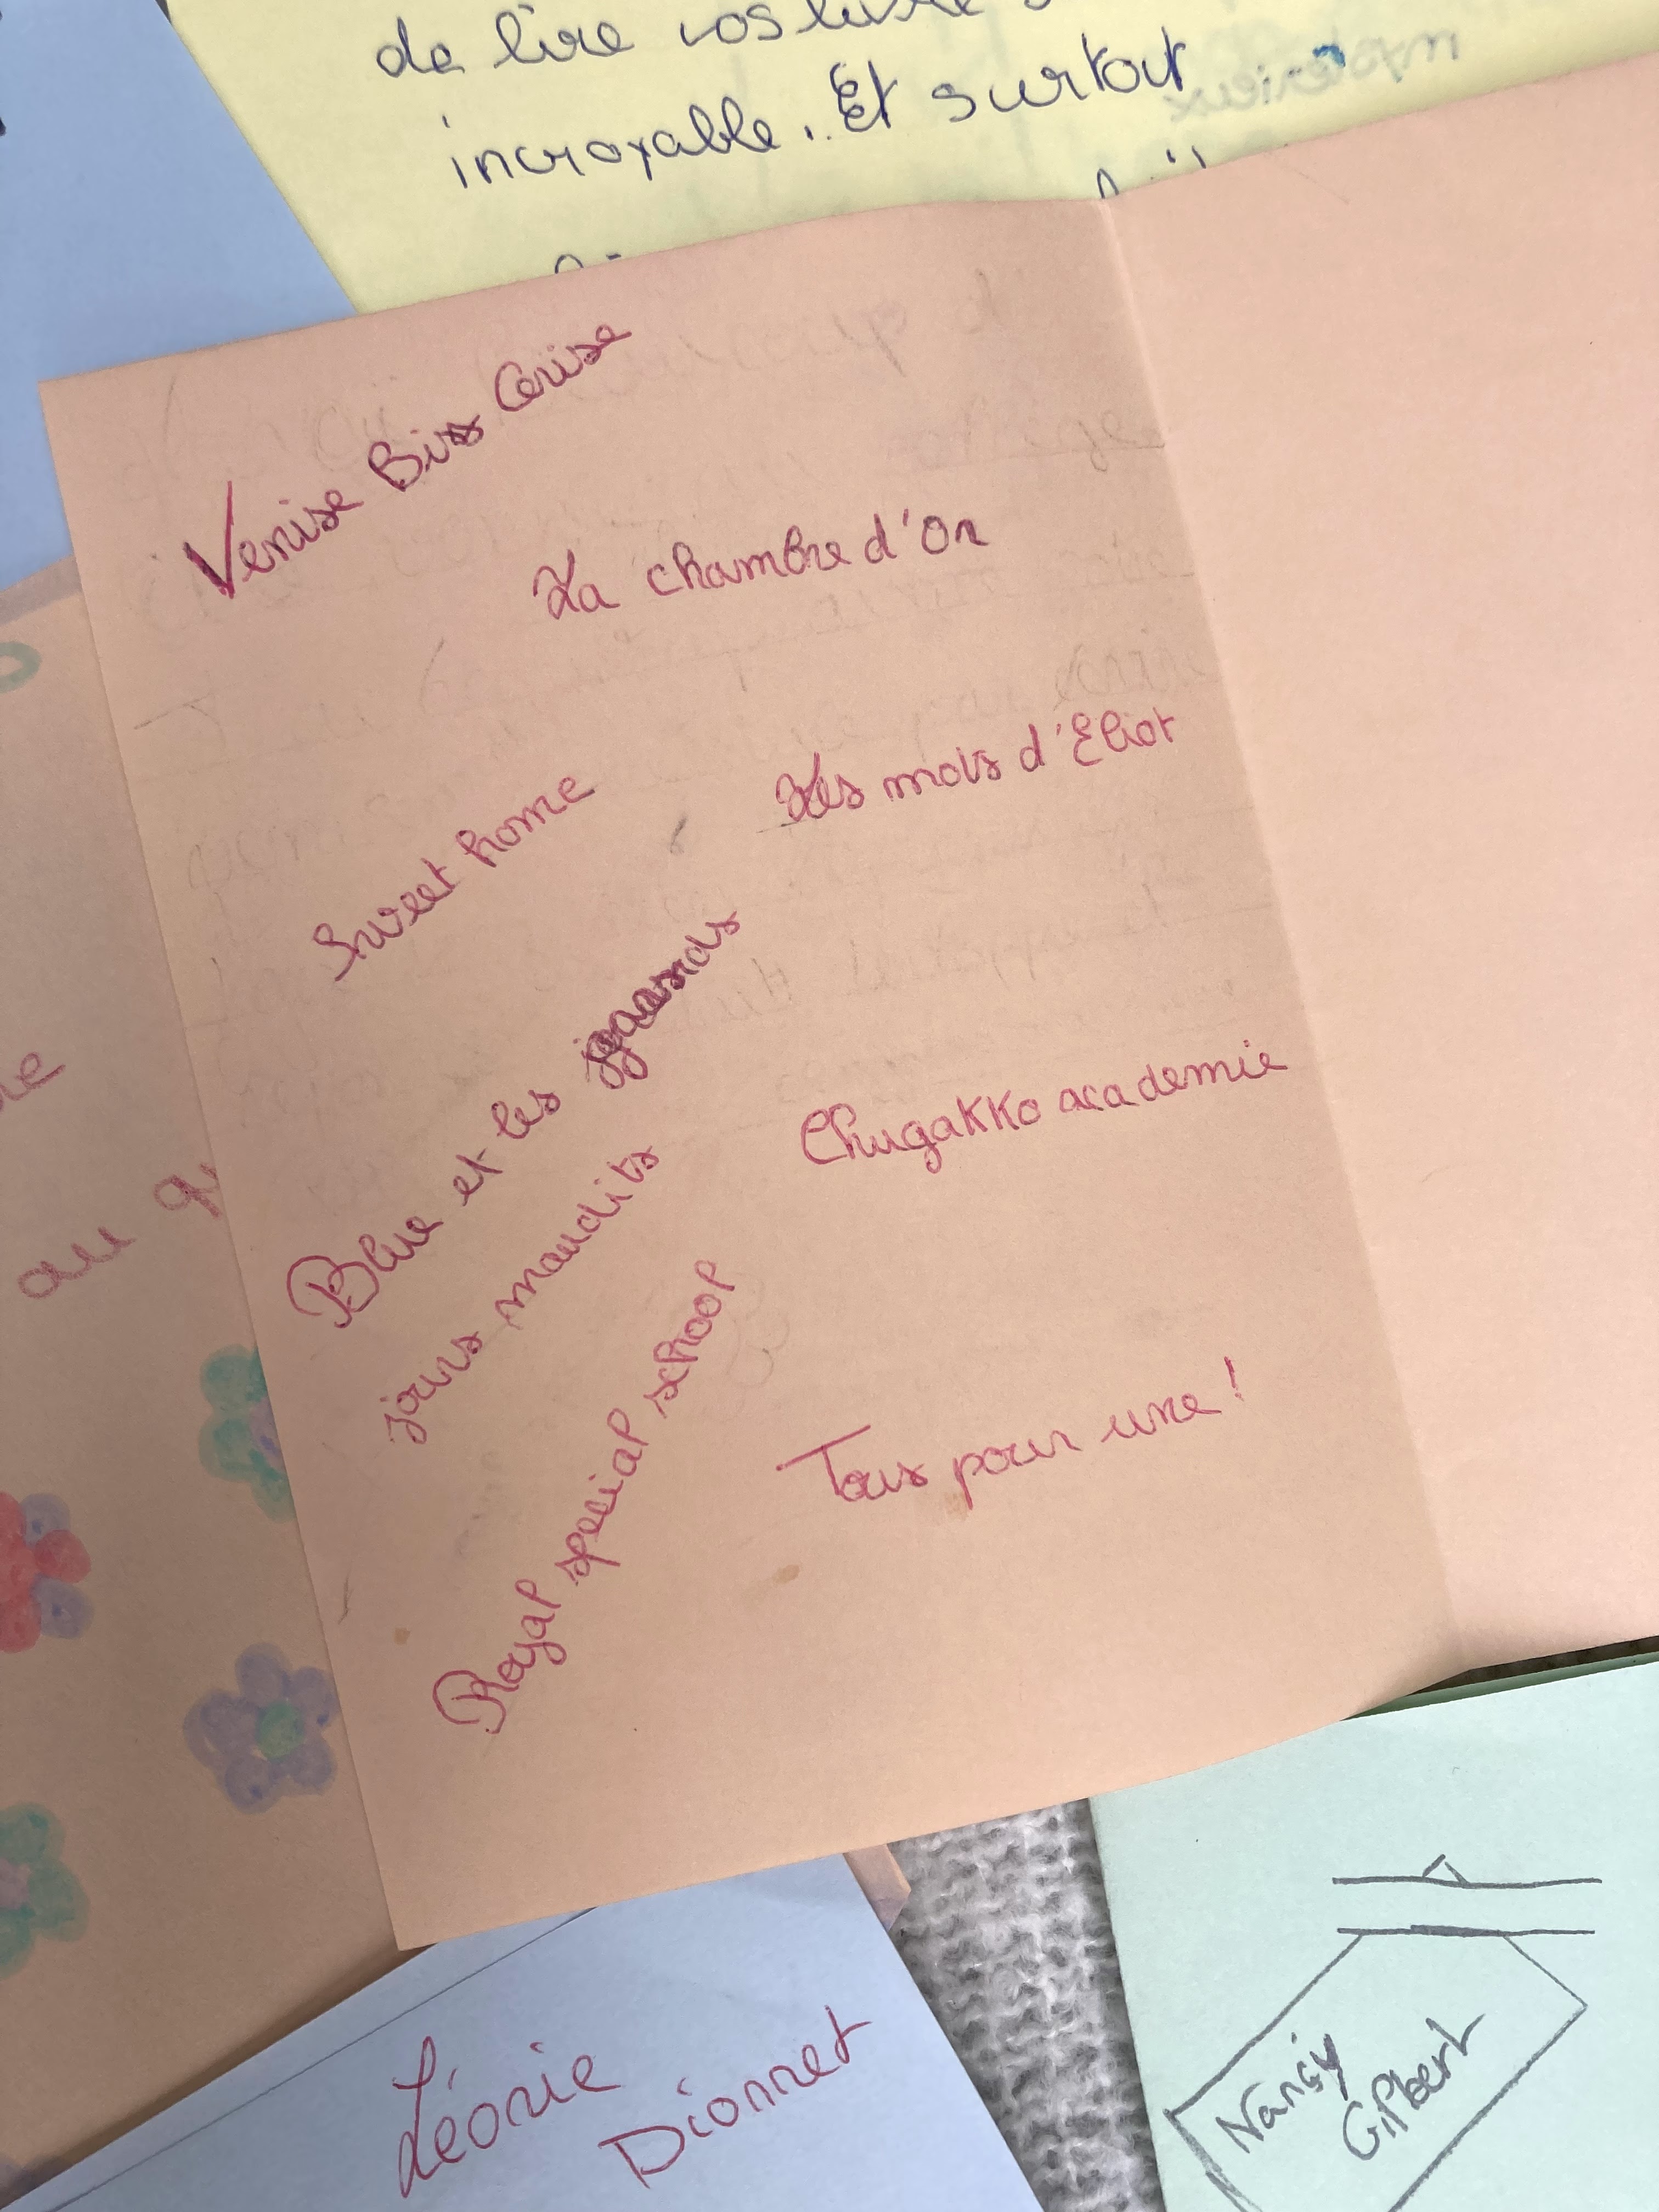 de lire vos
incroyable. Et surtout
mystérieux
Venise Biss Cerise
La chambre d'or
Sweet home
Les mots d'Eliot
Blue et les grands
jours maudits
Chugakko academie
Royal special school
Tous pour une !
au
Léonie
Dionnet
Nancy
Gilbert